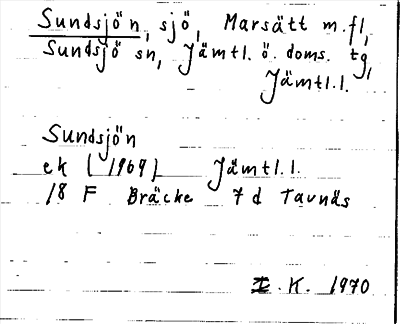 Sundsjön, sjö, Marsätt m.fl,
Sundsjö sn, Jämtl. ö. doms. tg,
Jämtl.l.
Sundsjön
ek (1969) Jämtl.l.
18 F Bräcke 7 d Tavnäs
I. K. 1970